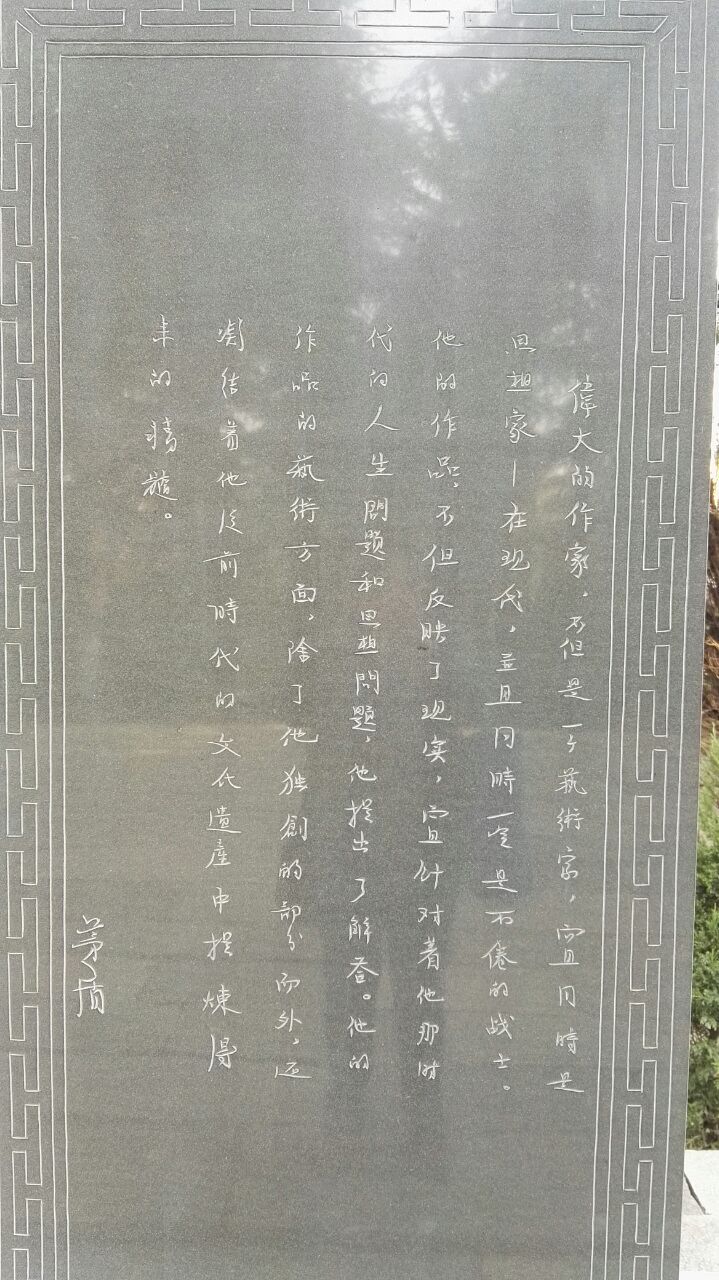 偉大的作家，不但是一个藝術家，而且同時是
思想家—在现代，並且同時一定是不倦的战士。
他的作品，不但反映了现实，而且針对着他那时
代的人生問題和思想問題，他提出了解答。他的
作品的藝術方面，除了他独創的部分而外，还
凝结着他从前时代的文化遺産中提煉得
来的精髓。
茅盾